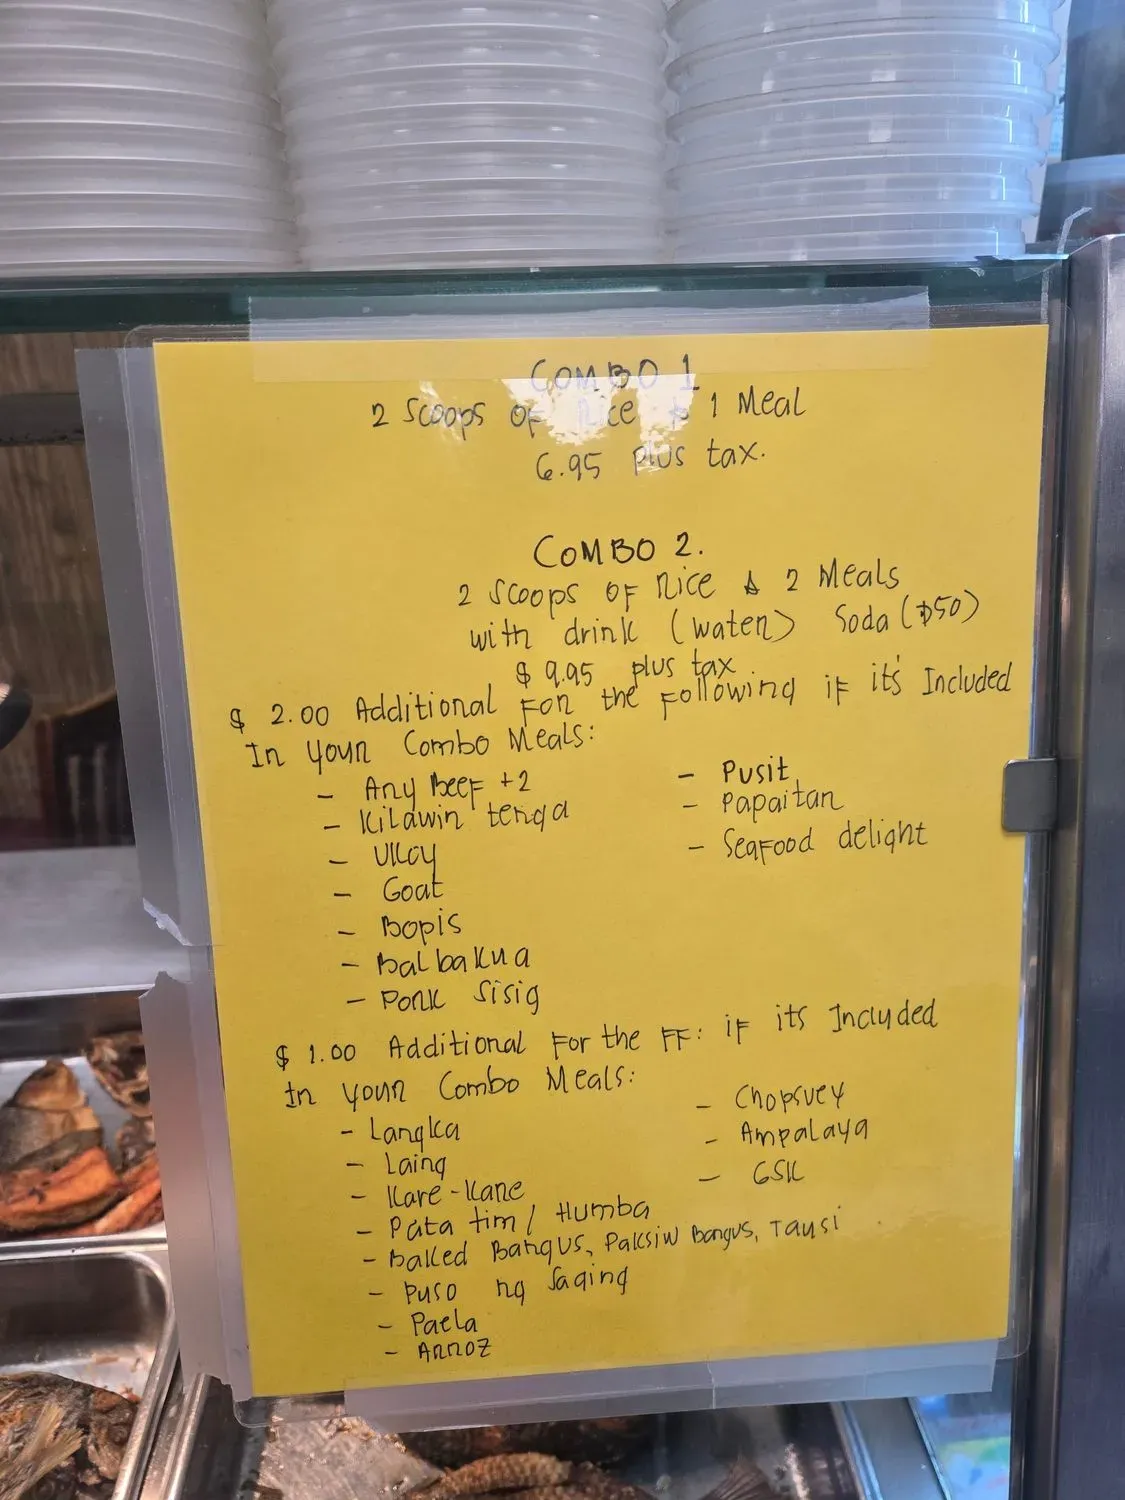 COMBO 1
2 Scoops OF Rice & 1 Meal
6.95 plus tax.
COMBO 2.
2 Scoops OF Rice & 2 Meals
with drink (water) Soda ($50)
$ 9.95 plus tax
$ 2.00 Additional For the Following iF it's Included
In Your Combo Meals:
- Any Beef +2
- Kilawin tenga
- Ukoy
- Goat
- Bopis
- Balbakua
- Pork Sisig
- Pusit
- Papaitan
- Seafood delight
$ 1.00 Additional For the FF: iF its Included
In your Combo Meals:
- Langka
- Laing
- Kare-Kare
- Pata tim / Humba
- Baked Bangus, Paksiw Bangus, Tausi
- Puso ng Saging
- Paela
- Arroz
- Chopsuey
- Ampalaya
- GSK